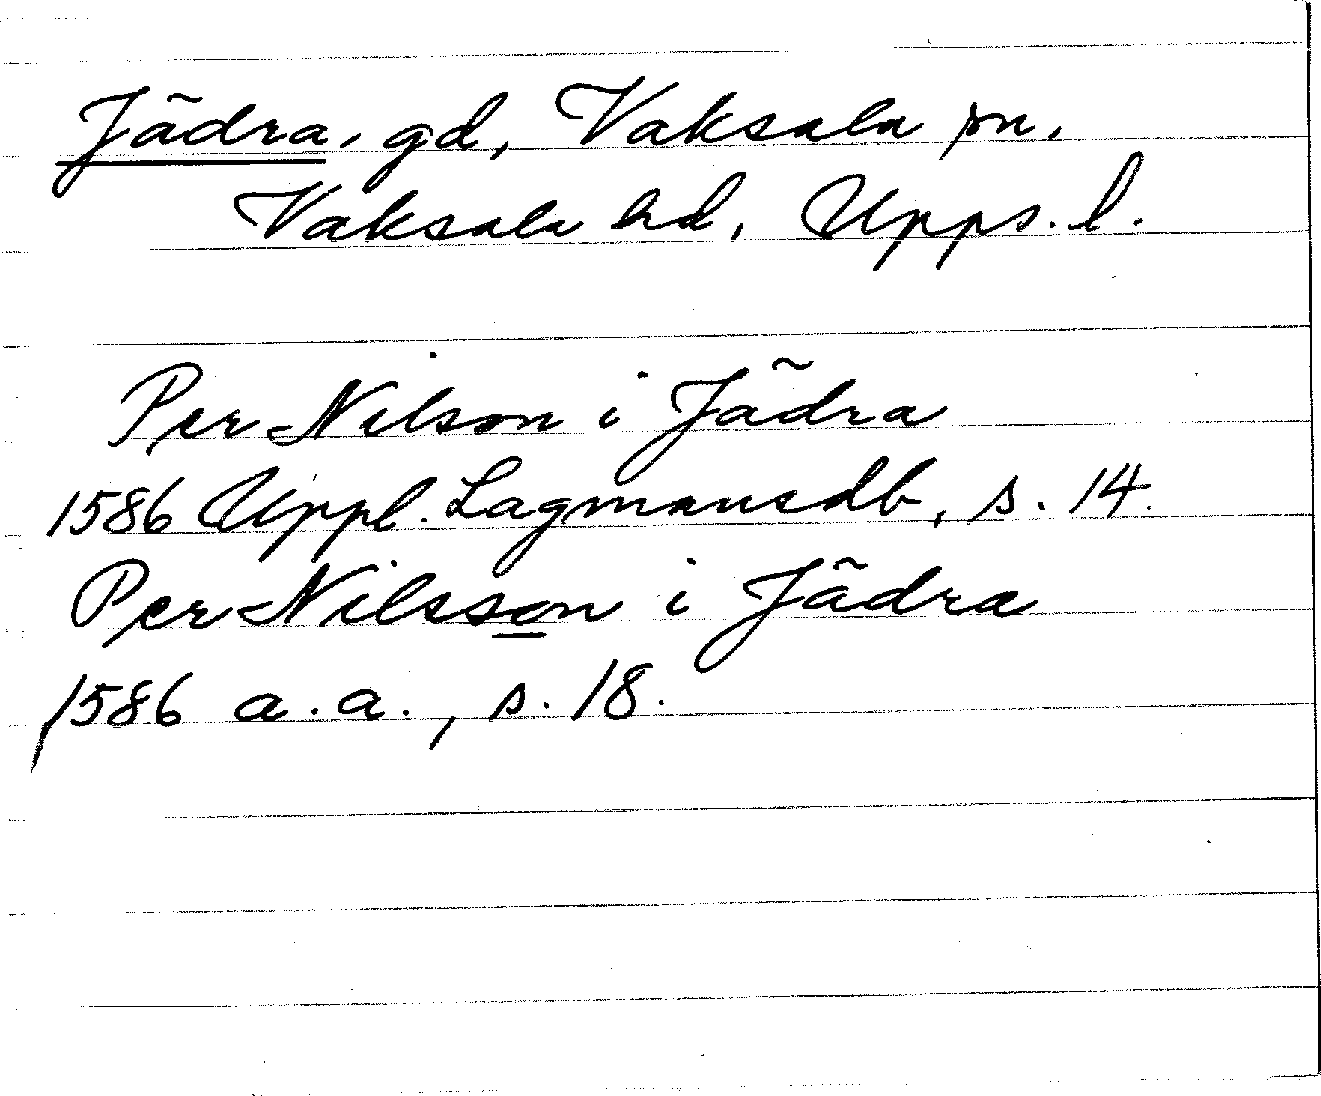 Jädra, gd, Vaksala sn,
Vaksala hd, Upps. l.
Per Nilson i Jädra
1586 Uppl. Lagmansdb, s. 14.
Per Nilsson i Jädra
1586 a.a., s. 18.